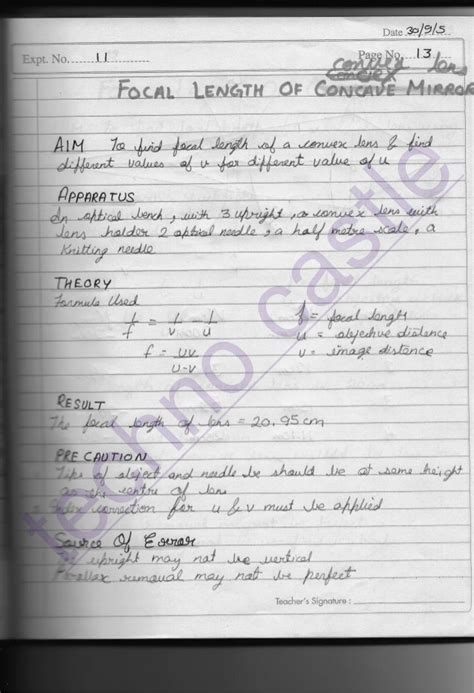 Date 30/9/5
Expt. No. 11 Page No. 13
convex lens
convex
FOCAL LENGTH OF CONCAVE MIRROR
AIM To find focal length of a convex lens & find
different values of v for different value of u
APPARATUS
An optical bench, with 3 upright, a convex lens with
lens holder 2 optical needle, a half metre scale, a
Knitting needle
THEORY
Formula Used
1/f = 1/v - 1/u f = focal length
u = objective distance
f = uv/u-v v = image distance
RESULT
The focal length of lens = 20.95cm
PRECAUTION
Tips of object and needle be should be at same height
as the centre of lens
Index correction for u & v must be applied
Source Of Error
upright may not be vertical
Parallax removal may not be perfect
Teacher's Signature :
techno castle